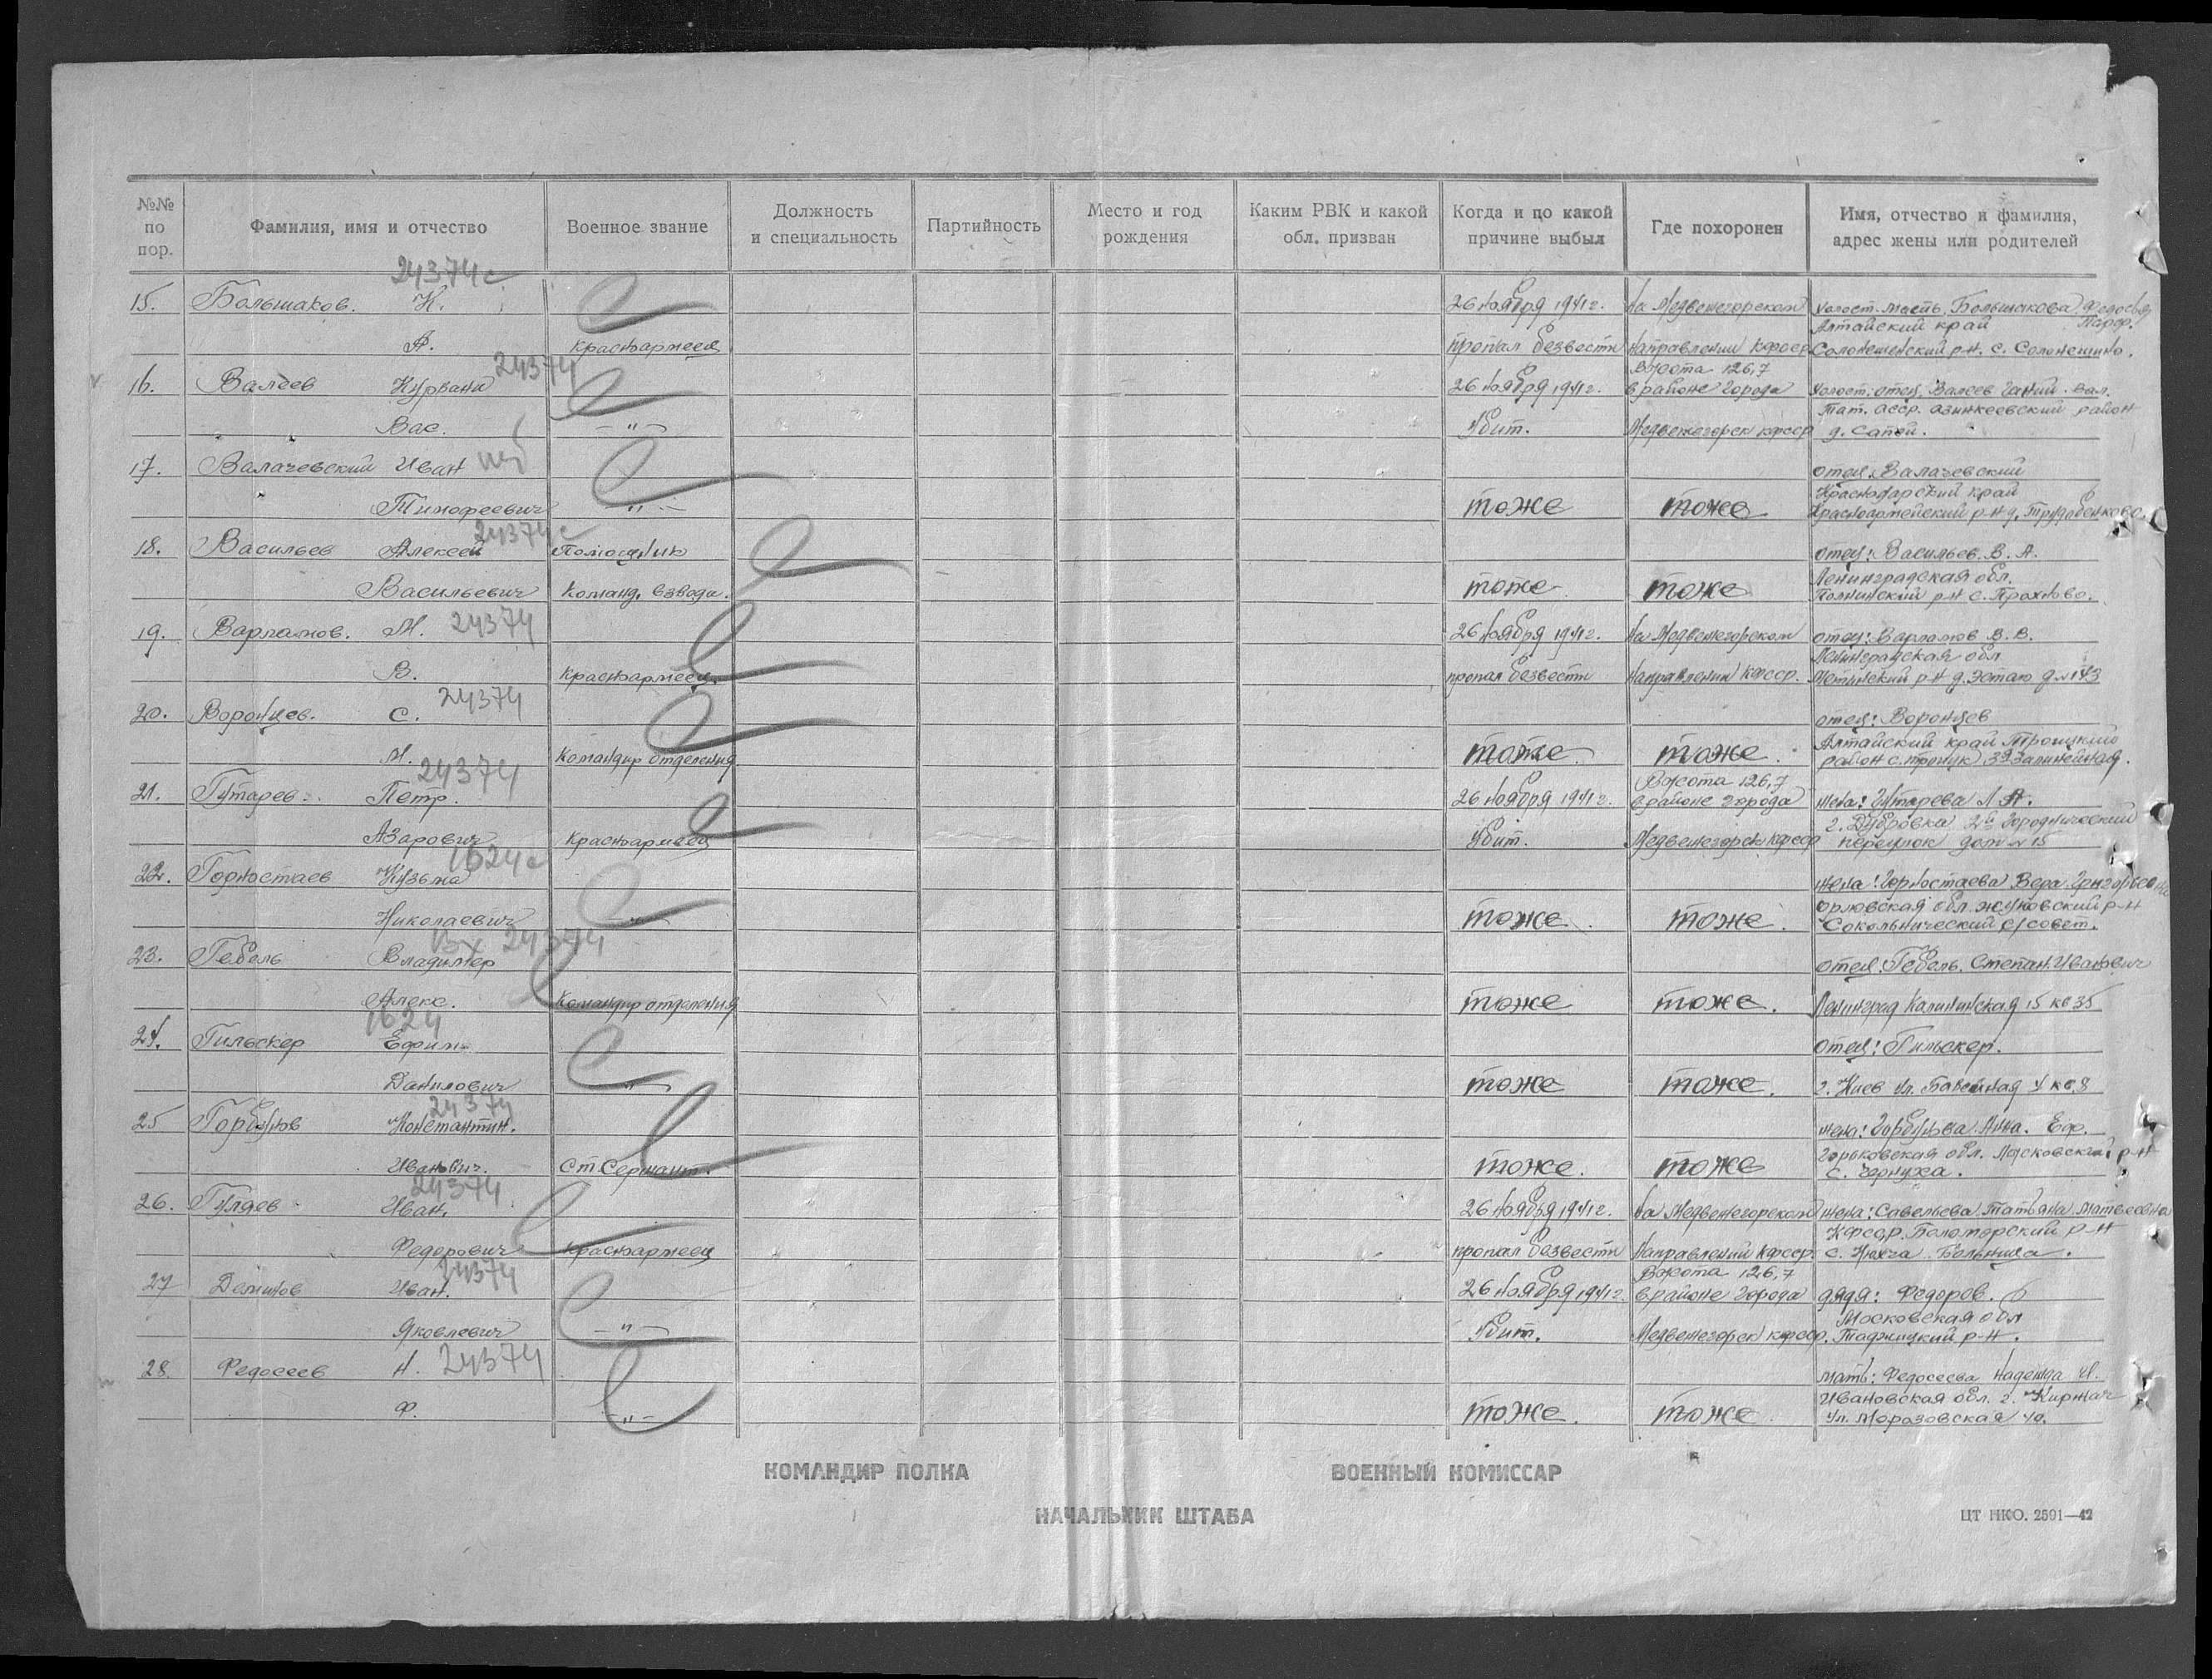 №№ по пор.
Фамилия, имя и отчество
Военное звание
Должность и специальность
Партийность
Место и год рождения
Каким РВК и какой обл. призван
Когда и по какой причине выбыл
Где похоронен
Имя, отчество и фамилия, адрес жены или родителей
24374с
15. Большаков. К. 26 ноября 1941г. На Медвежегорском холост. мать, Большакова Федосья
Алтайский край
А. красноармеец пропал безвести направлении кфсср Солонешенский р-н. с. Солонешно.
24374 Высота 126,7
16. Валеев Курбани 26 ноября 1941г. в районе города холост. отец, Валеев Ганий. Вал.
Тат. асср. азинкеевский район
Вас. -"- Убит. Медвежегорск кфсср д.
17. Валачевский Иван отец, Валачевский
Краснодарский край
Тимофеевич -"- тоже тоже Красноармейский р-н д.
24374с
18. Васильев Алексей Помощник отец: Васильев. В. А.
Ленинградская обл.
Васильевич Команд. взвода. тоже тоже р-н с.
19. Варламов. М. 24374 26 ноября 1941г. На Медвежегорском отец: Варламов В. В.
Ленинградская обл
В. красноармеец. пропал безвести направлении кфсср. р-н д. д. № 143
24374
20. Воронцев. С. отец: Воронцев
Алтайский край Троицкий
М. Командир отделения тоже тоже. район с.
24374 Высота 126,7
21. Гутарев. Петр. 26 ноября 1941г. в районе города жена: Гутарева Л. А.
г. Дубровка 2й Городнический
Азарович красноармеец Убит. Медвежегорск кфсср переулок дом № 15
1624с
22. Горностаев Кузьма жена: Горностаева Вера Григорьевна
орловская обл. жуковский р-н
Николаевич -"- тоже. тоже. Сокольнический с/совет.
Вх 24374
23. Гебель Владимер отец, Гебель, Степан. Иванович
Алекс. Командир отделения тоже тоже. Ленинград Калининская 15 кв 35
1624
24. Гильскер Ефим. отец: Гильскер.
Данилович -"- тоже тоже. г. Киев ул. 4 кв. 8
24374
25 Горбунов Константин. жена: Горбунова Анна. Еф.
Горьковская обл. р-н
Иванович. Ст Сержант. тоже. тоже с. Чернуха.
24374
26. Гуляев Иван. 26 ноября 1941г. На Медвежегорском жена: Савельева Татьяна Матвеевна
Кфсср. Беломорский р-н
Федорович красноармеец пропал безвести направлений Кфсср. с. Нюхча. Больница.
24374 Высота 126,7
27 Деминов Иван. 26 ноября 1941г. в районе города дядя: Федоров.
Московская обл
Яковлевич -"- Убит. Медвежегорск кфсср. р-н.
28. Федосеев Н. 24374 мать: Федосеева Надежда И.
Ивановская обл. г. Киржач
Ф. -"- тоже. тоже ул. Морозовская 40.
КОМАНДИР ПОЛКА
ВОЕННЫЙ КОМИССАР
НАЧАЛЬНИК ШТАБА
ЦТ НКО. 2591—42